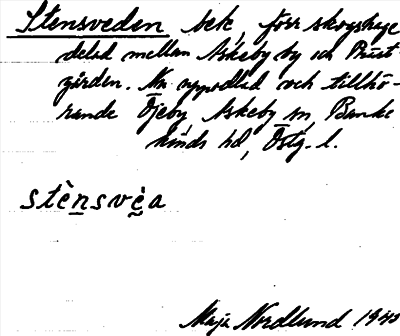 Stensveden bek, förr skogshage
delad mellan Askeby by och Präst-
gården. Nu uppodlad och tillhö-
rande Öjeby Askeby sn, Banke
kinds hd, Östg. l.
stènsvèa
Maja Nordlund 1940